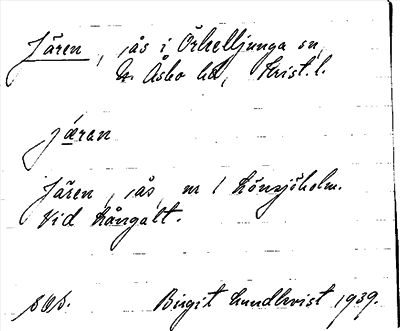 Jären, sås i Örkelljunga sn,
N. Åsbo hd, Krist. l.
jæran
Jären, sås nr 1 Lönsjöholm.
Vid Långalt.
Birgit Lundkvist 1939.